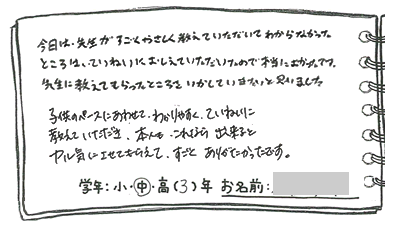 今日は、先生がすごくやさしく教えていただいてわからなかった
ところは、ていねいにおしえていただいたので本当によかったです。
先生に教えてもらったところをいかしていきたいと思いました
子供のペースにあわせて、わかりやすく、ていねいに
教えていただき、本人も、これなら出来ると
ヤル気にさせてもらえて、すごく ありがたかったです。
学年:小・中・高(3)年 お名前: